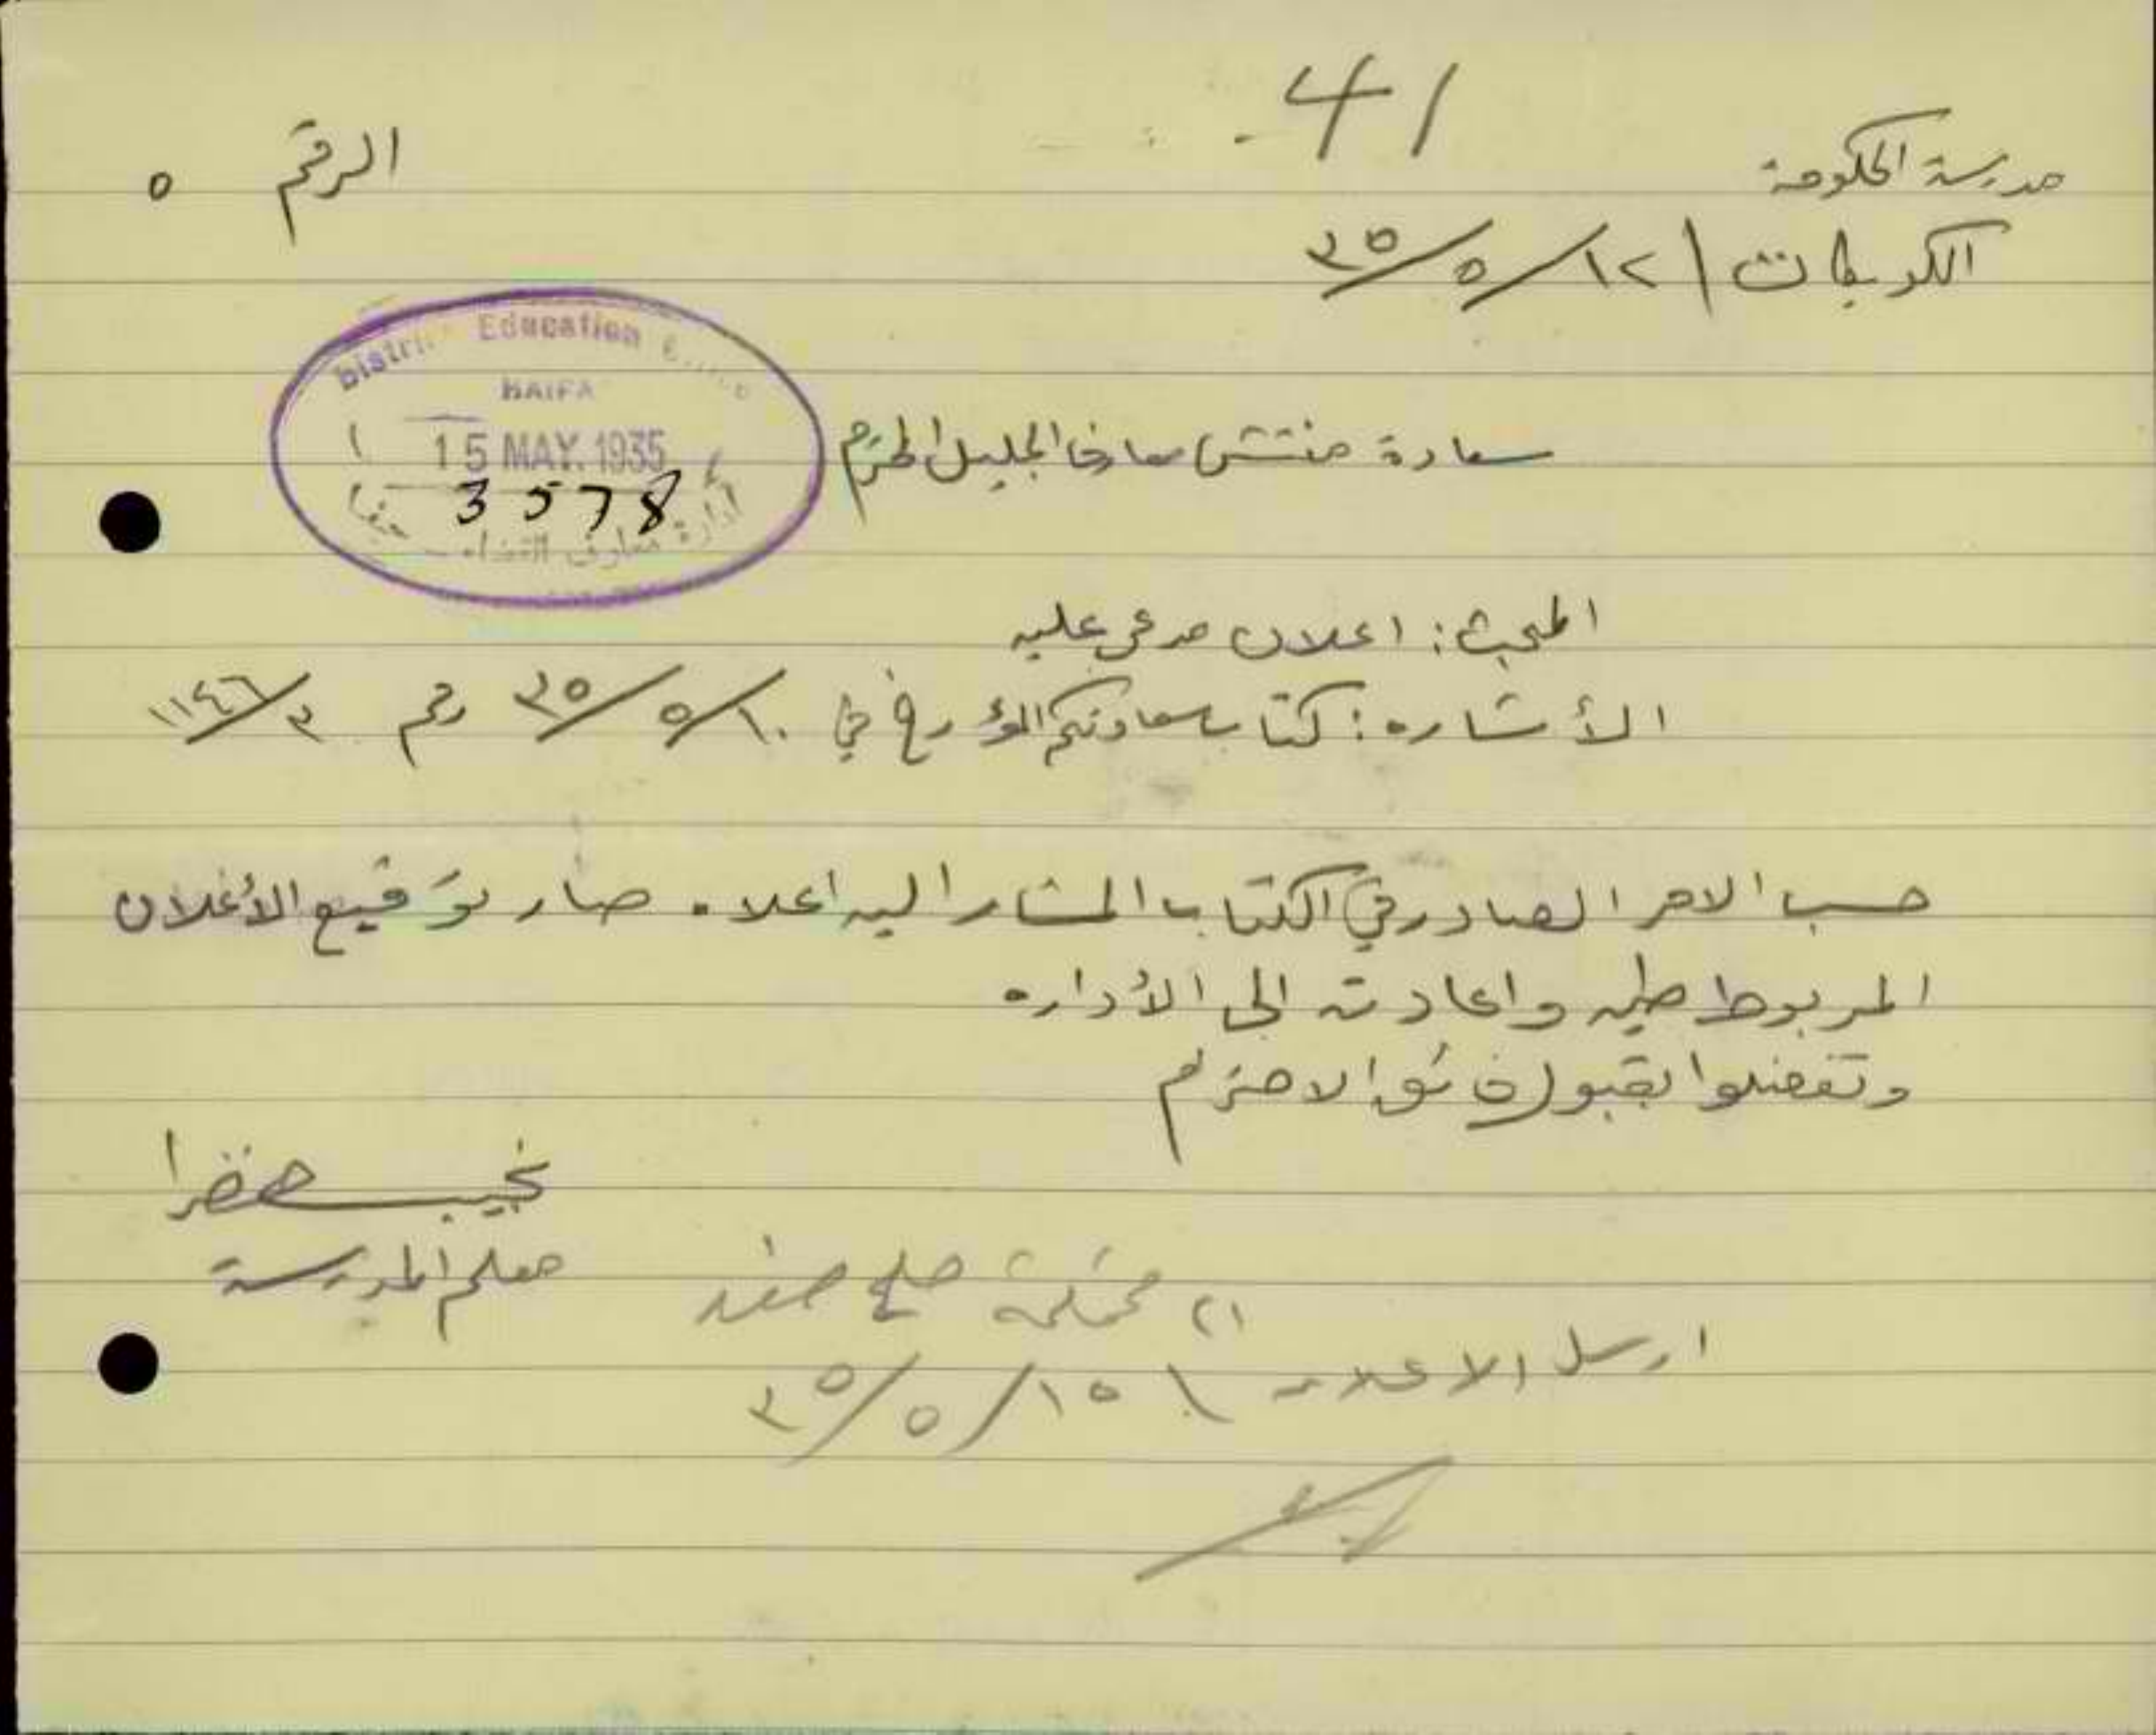 41
مدرسة الحكومة
الرقم ٥
الكويكات / ١٢/٥/٣٥
District Education
HAIFA
15 MAY. 1935
3578
ادارة معارف القضاء - حيفا
سعادة مفتش معارف الجليل المحترم
المبحث: اعلان مدعى عليه
الأشاره: كتاب سعادتكم المؤرخ في ١٠/٥/٣٥ رقم ٣/١١٤٦
حسب الامر الصادر في الكتاب المشار اليه اعلاه صار توقيع الأعلان
المربوط طيه واعادته الى الأداره
وتفضلوا بقبول فائق الاحترام
نجيب
معلم المدرسة
محكمة صلح صفد
ارسل الاعلان \ ١٥/٥/٣٥